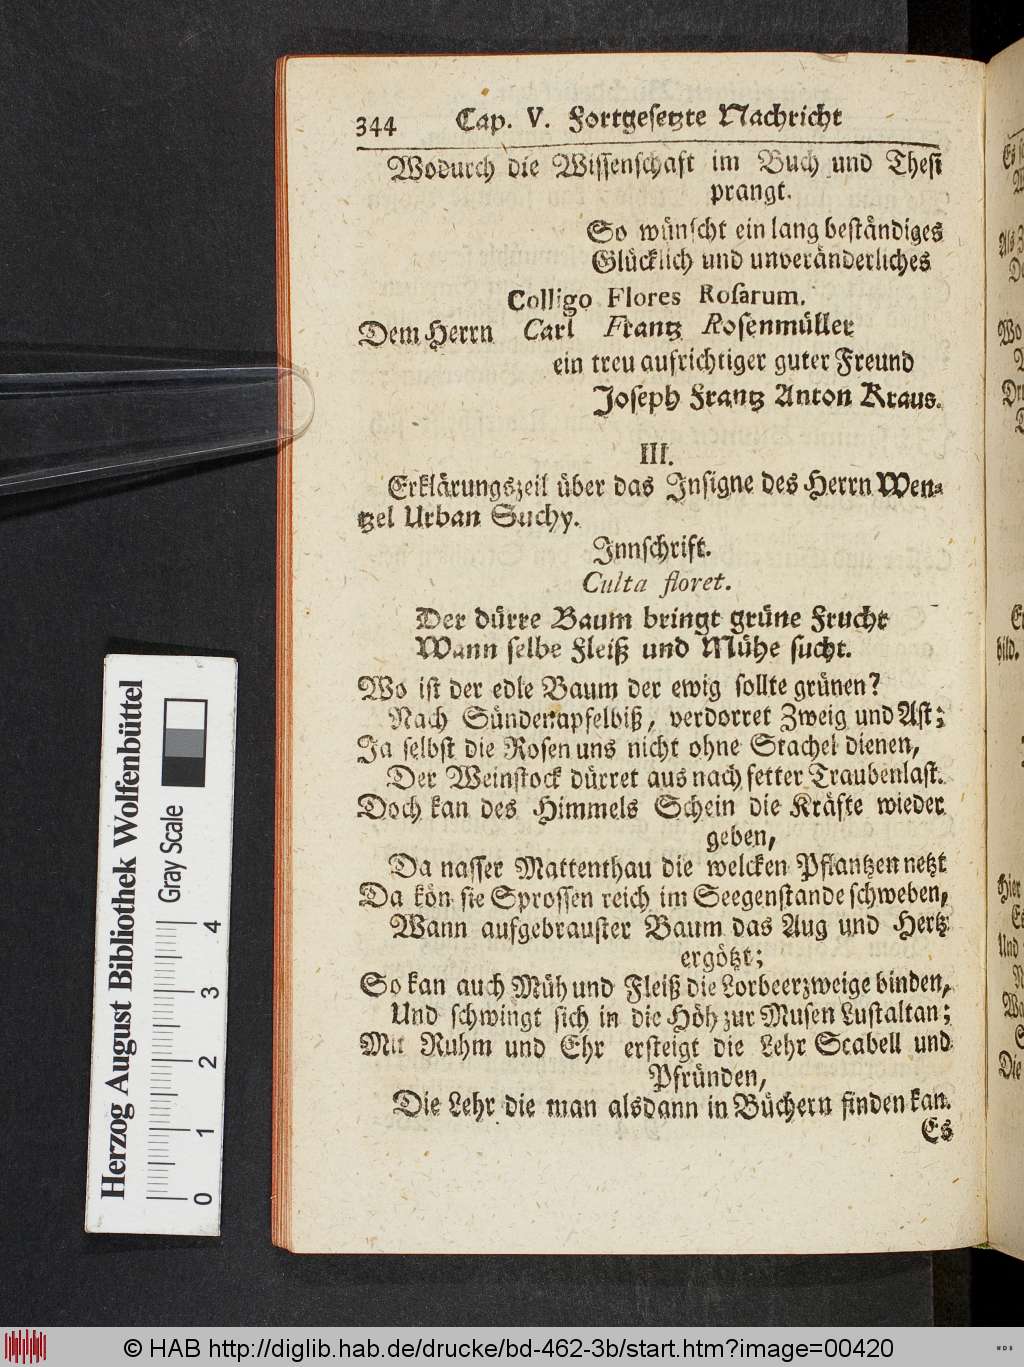 344 Cap. V. Fortgesetzte Nachricht
Wodurch die Wissenschaft im Buch und Thesi
prangt.
So wünscht ein lang beständiges
Glücklich und unveränderliches
Colligo Flores Rosarum.
Dem Herrn Carl Frantz Rosenmüller
ein treu aufrichtiger guter Freund
Joseph Frantz Anton Kraus.
III.
Erklärungszeil über das Insigne des Herrn Wen-
tzel Urban Suchy.
Innschrift.
Culta floret.
Der dürre Baum bringt grüne Frucht
Wann selbe Fleiß und Mühe sucht.
Wo ist der edle Baum der ewig sollte grünen?
Nach Sündenapfelbiß, verdorret Zweig und Ast;
Ja selbst die Rosen uns nicht ohne Stachel dienen,
Der Weinstock dürret aus nach fetter Traubenlast.
Doch kan des Himmels Schein die Kräfte wieder
geben,
Da nasser Mattenthau die welcken Pflantzen netzt
Da kön sie Sprossen reich im Seegenstande schweben,
Wann aufgebrauster Baum das Aug und Hertz
ergötzt;
So kan auch Müh und Fleiß die Lorbeerzweige binden,
Und schwingt sich in die Höh zur Musen Lustaltan;
Mit Ruhm und Ehr ersteigt die Lehr Scabell und
Pfründen,
Die Lehr die man alsdann in Büchern finden kan.
Es
Herzog August Bibliothek Wolfenbüttel
Gray Scale
0 1 2 3 4
© HAB http://diglib.hab.de/drucke/bd-462-3b/start.htm?image=00420